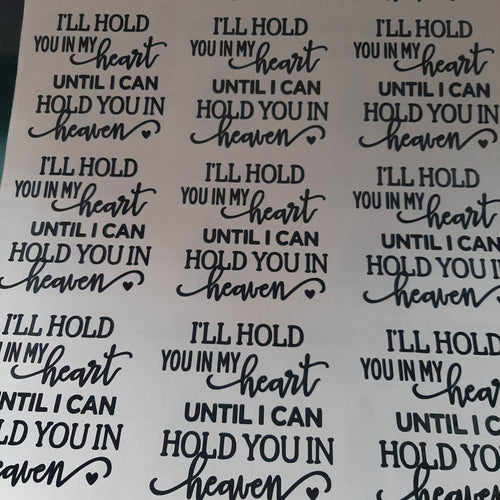 I'LL HOLD
YOU IN MY heart
UNTIL I CAN
HOLD YOU IN
heaven
I'LL HOLD
YOU IN MY heart
UNTIL I CAN
HOLD YOU IN
heaven
I'LL HOLD
YOU IN MY heart
UNTIL I CAN
HOLD YOU IN
heaven
I'LL HOLD
YOU IN MY heart
UNTIL I CAN
HOLD YOU IN
heaven
I'LL HOLD
YOU IN MY heart
UNTIL I CAN
HOLD YOU IN
heaven
I'LL HOLD
YOU IN MY heart
UNTIL I CAN
HOLD YOU I
heaven
I'LL HOLD
IN MY heart
NTIL I CAN
LD YOU IN
eaven
I'LL HOLD
YOU IN MY heart
UNTIL I CAN
HOLD YOU IN
heaven
I'LL HOLD
YOU IN MY hea
UNTIL I C
HOLD YO
heave